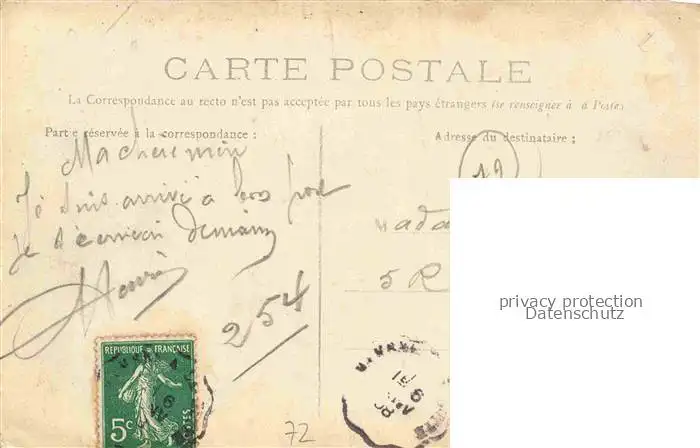 CARTE POSTALE
La Correspondance au recto n'est pas acceptée par tous les pays étrangers (se renseigner à a Poste)
Partie réservée à la correspondance :
Adresse du destinataire ;
19
Ma chère mimi
Je suis arrivé à bon port
Je t'écrirai demain
Henri
254
Mada
5 R
privacy protection
Datenschutz
REPUBLIQUE FRANÇAISE
POSTES
5c
72